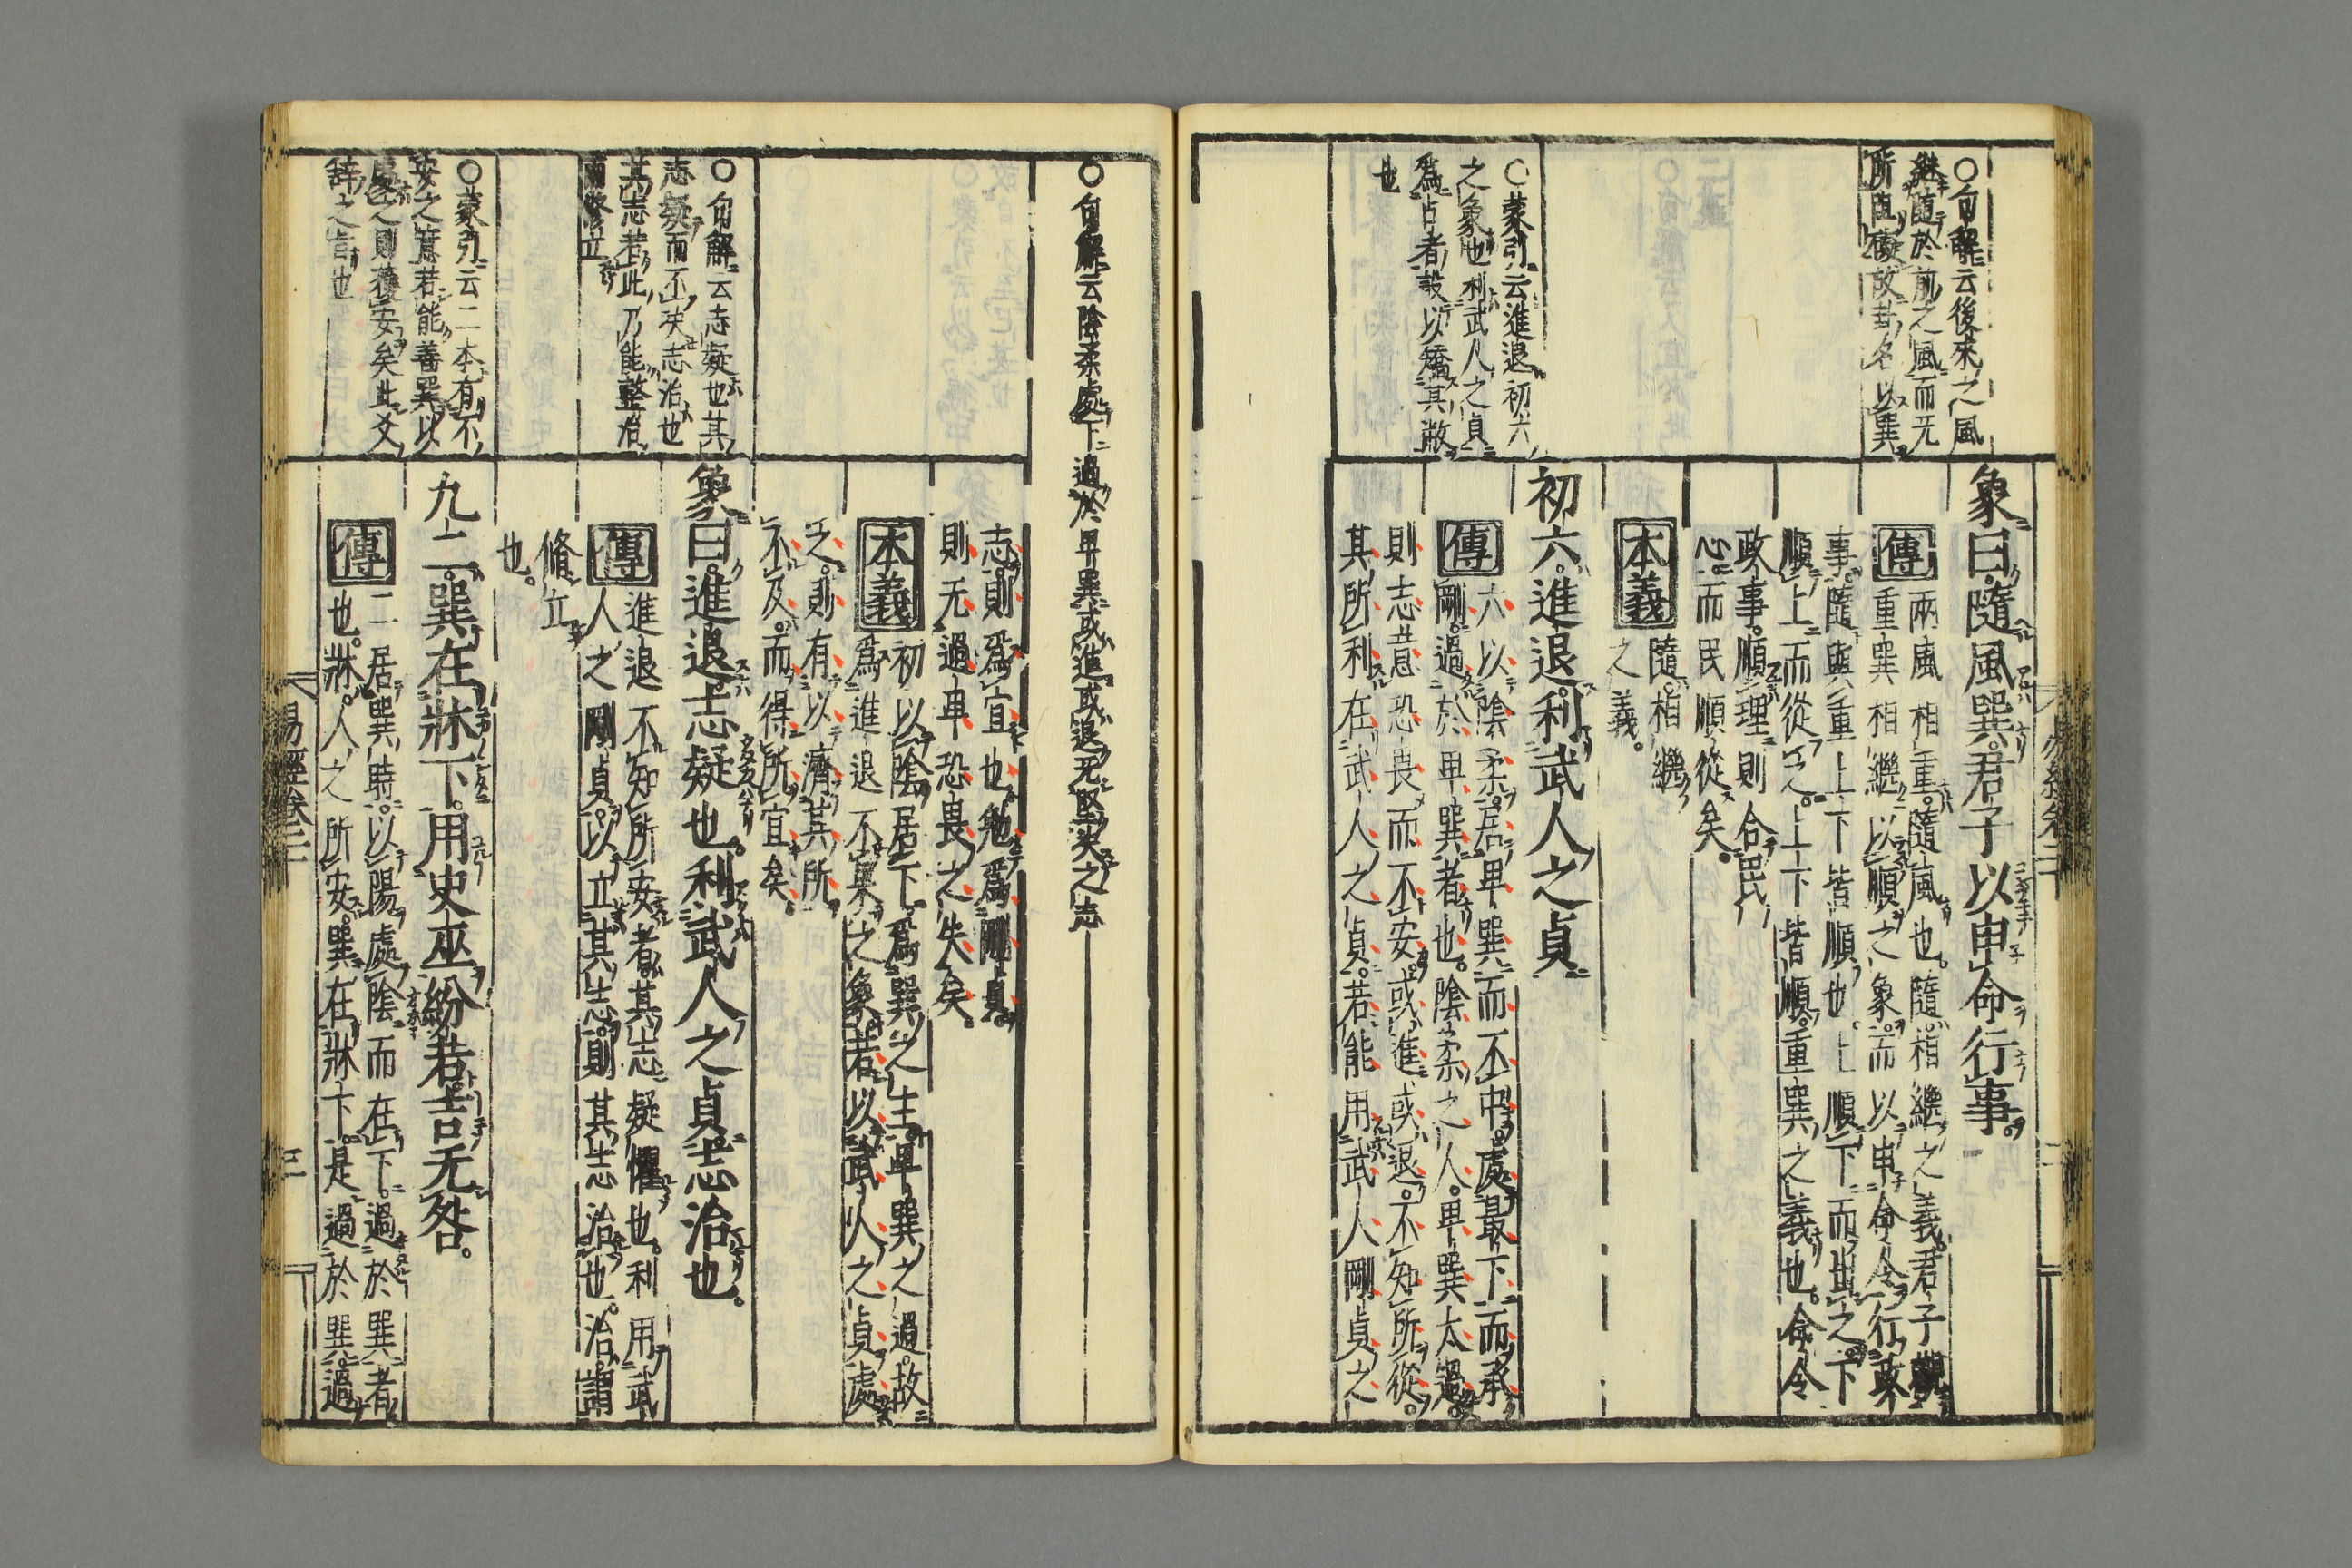 ○句解云後來之風
継隨於前之風而无
所阻礙故卦名以巽
象曰。隨風巽。君子以申命行事。
傳
兩風相重。隨風也。隨相繼之義。君子觀
重巽相繼以順之象。而以申命令行政
事。隨與重上下皆順也。上順下而出之。下
順上而從之。上下皆順。重巽之義也。命令
政事。順理則合民
心。而民順從矣。
本義
隨。相繼
之義。
○蒙引云進退初六
之象也利武人之貞
爲占者設以矯其敝
也
初六。進退。利武人之貞。
傳
六以陰柔。居卑巽而不中。處最下而承
剛。過於卑巽者也。陰柔之人。卑巽太過。
則志意恐畏而不安。或進或退。不知所從。
其所利在武人之貞。若能用武人剛貞之
易經卷二十
二
○句解云陰柔處下過於卑巽或進或退无堅決之志
志。則爲宜也。勉爲剛貞。
則无過卑恐畏之失矣。
本義
初以陰居下。爲巽之主。卑巽之過。故
爲進退不果之象。若以武人之貞處
之。則有以濟其所
不及。而得所宜矣。
○句解云志疑也其
志疑而不決志治也
其志若此乃能整治
而修立
象曰。進退。志疑也。利武人之貞。志治也。
傳
進退不知所安者。其志疑懼也。利用武
人之剛貞。以立其志。則其志治也。治。謂
脩立
也。
○蒙引云二本有不
安之意若能善巽以
處之則獲安矣此爻
辞之旨也
九二。巽在牀下。用史巫紛若。吉无咎。
傳
二居巽時。以陽處陰而在下。過於巽者
也。牀。人之所安。巽在牀下。是過於巽。過
易經卷二十
三